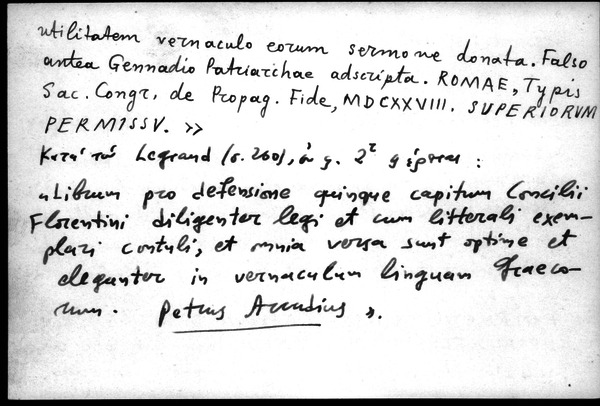 utilitatem vernaculo eorum sermone donata. Falso
antea Gennadio Patriarchae adscripta. ROMAE, Typis
Sac. Congr. de Propag. Fide, MDCXXVIII. SUPERIORVM
PERMISSV. »
Κατά τόν Legrand (σ. 200), φέρεται :
«Librum pro defensione quinque capitum Concilii
Florentini diligenter legi et cum litterali exem-
plari contuli, et omnia versa sunt optime et
eleganter in vernaculam linguam Graeco-
rum. Petrus Arcudius».